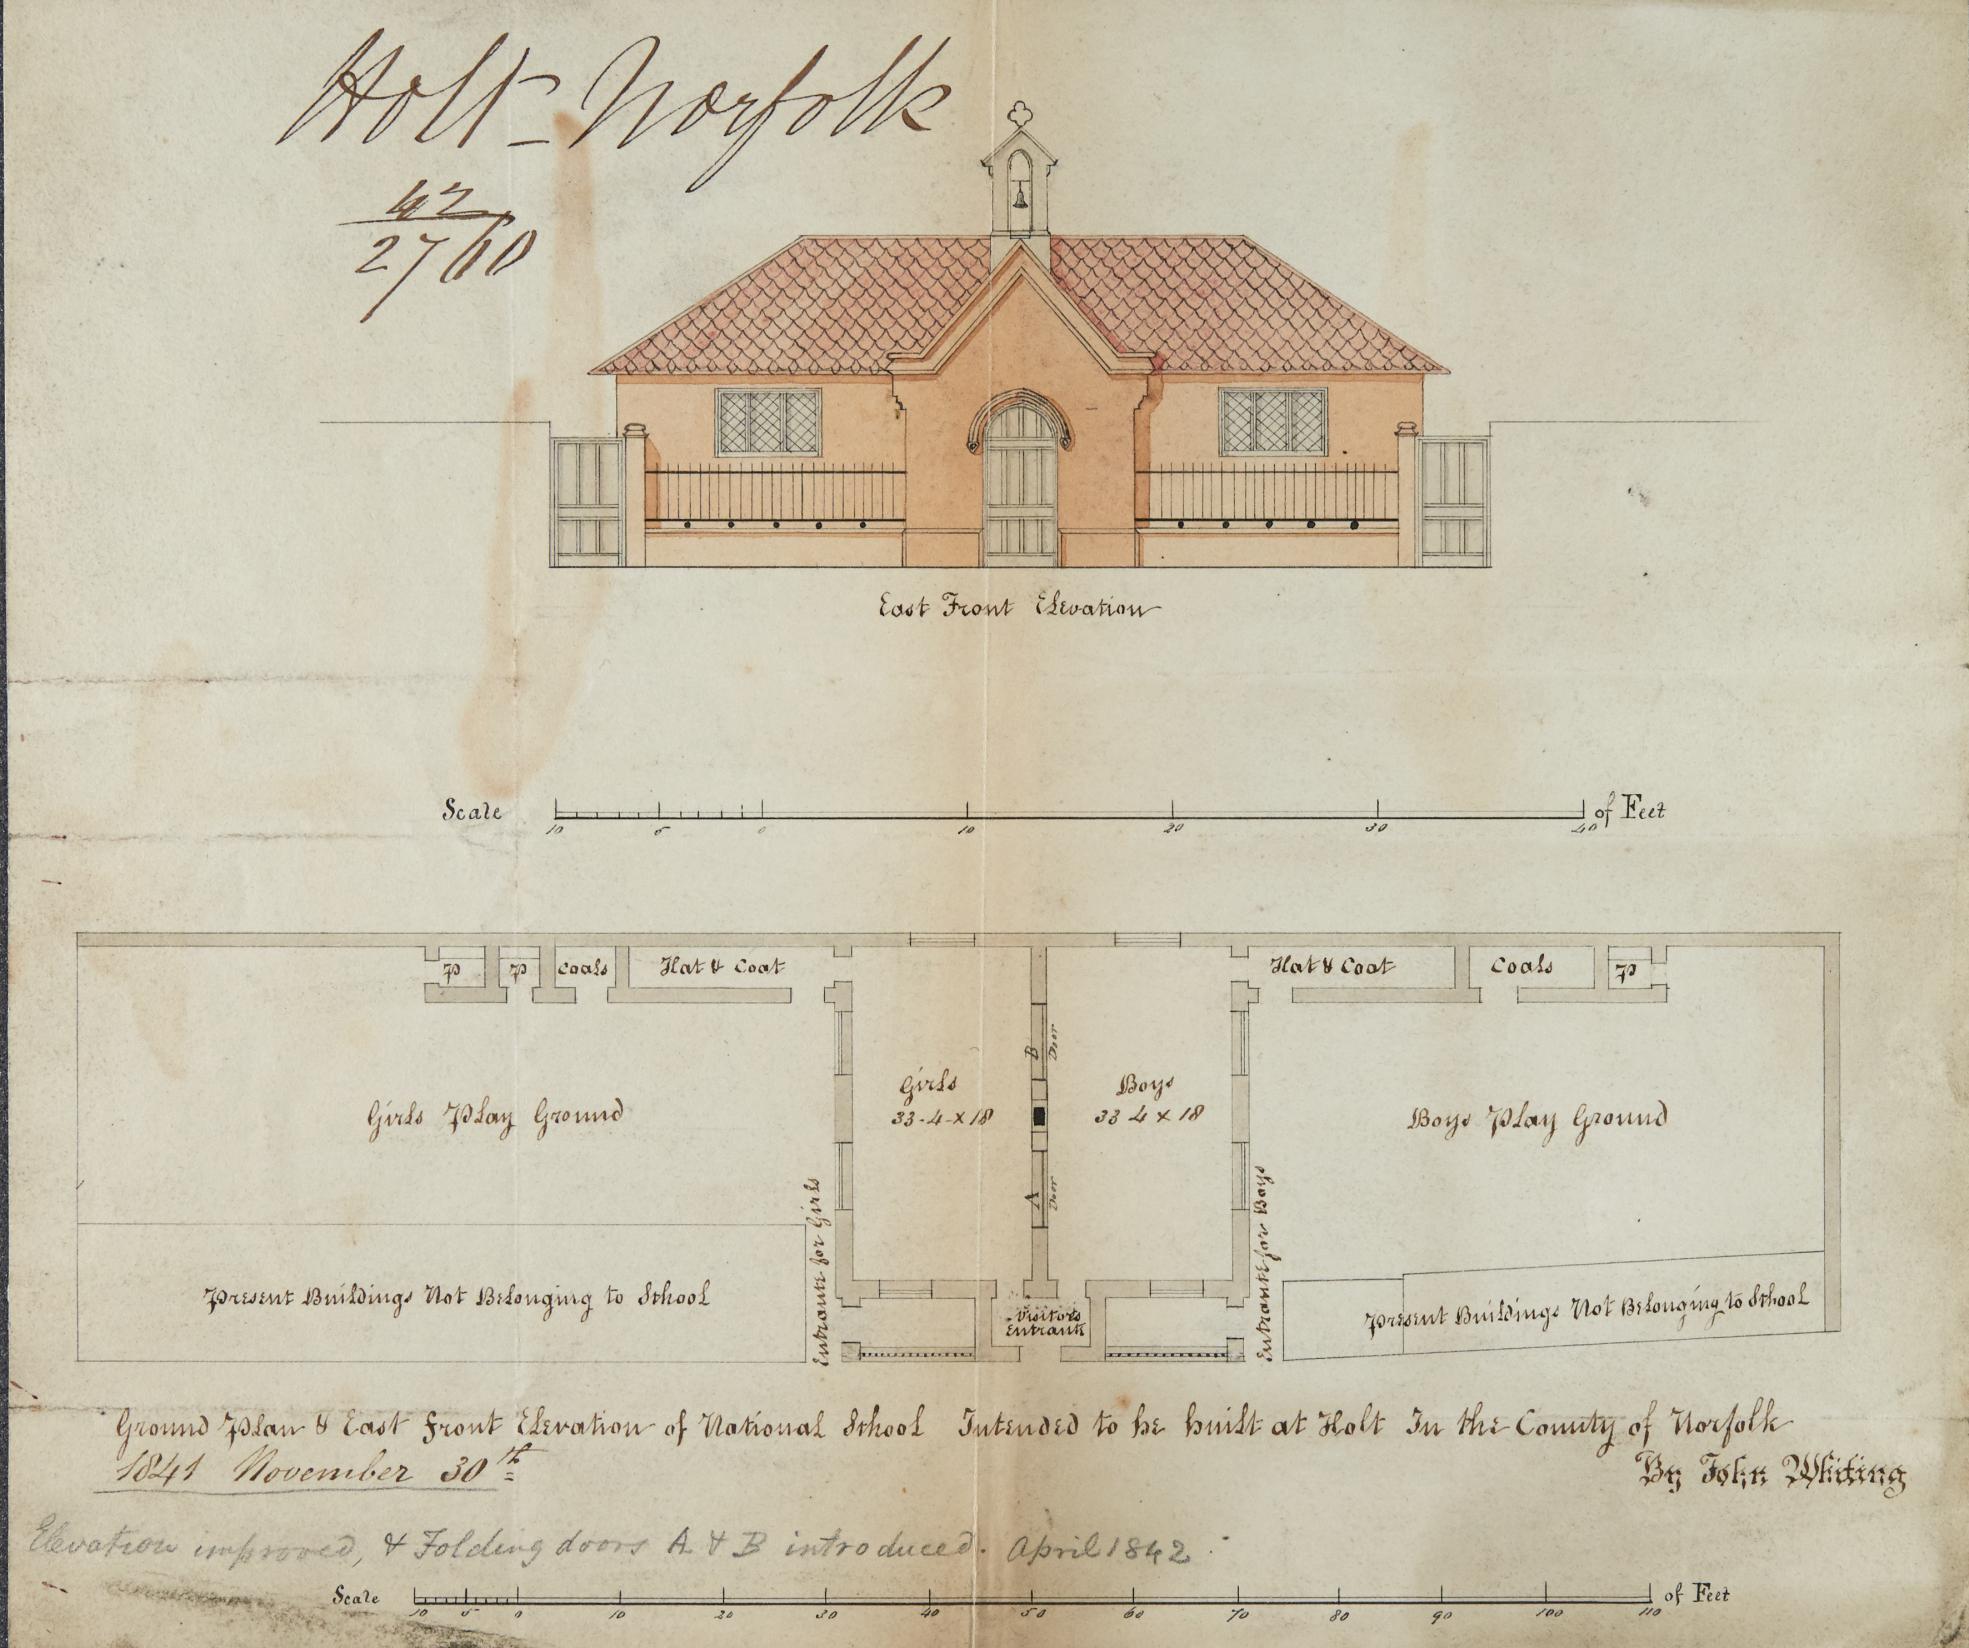 Holt - Norfolk
42
2760
East Front Elevation
Scale 10 5 0 10 20 30 40 of Feet
P P Coals Hat & Coat Hat & Coat Coals P
B Door
Girls
33-4-x18
Boys
33 4 x 18
Girls Play Ground
Boys Play Ground
A Door
Entrance for Girls
Entrance for Boys
Present Buildings Not Belonging to School
Visitors
Entrance
Present Buildings Not Belonging to School
Ground Plan & East front Elevation of National School Intended to be built at Holt In the County of Norfolk
1841 November 30th
By John Whiting
Elevation improved, & Folding doors A & B introduced. April 1842
Scale 10 5 0 10 20 30 40 50 60 70 80 90 100 110 of Feet